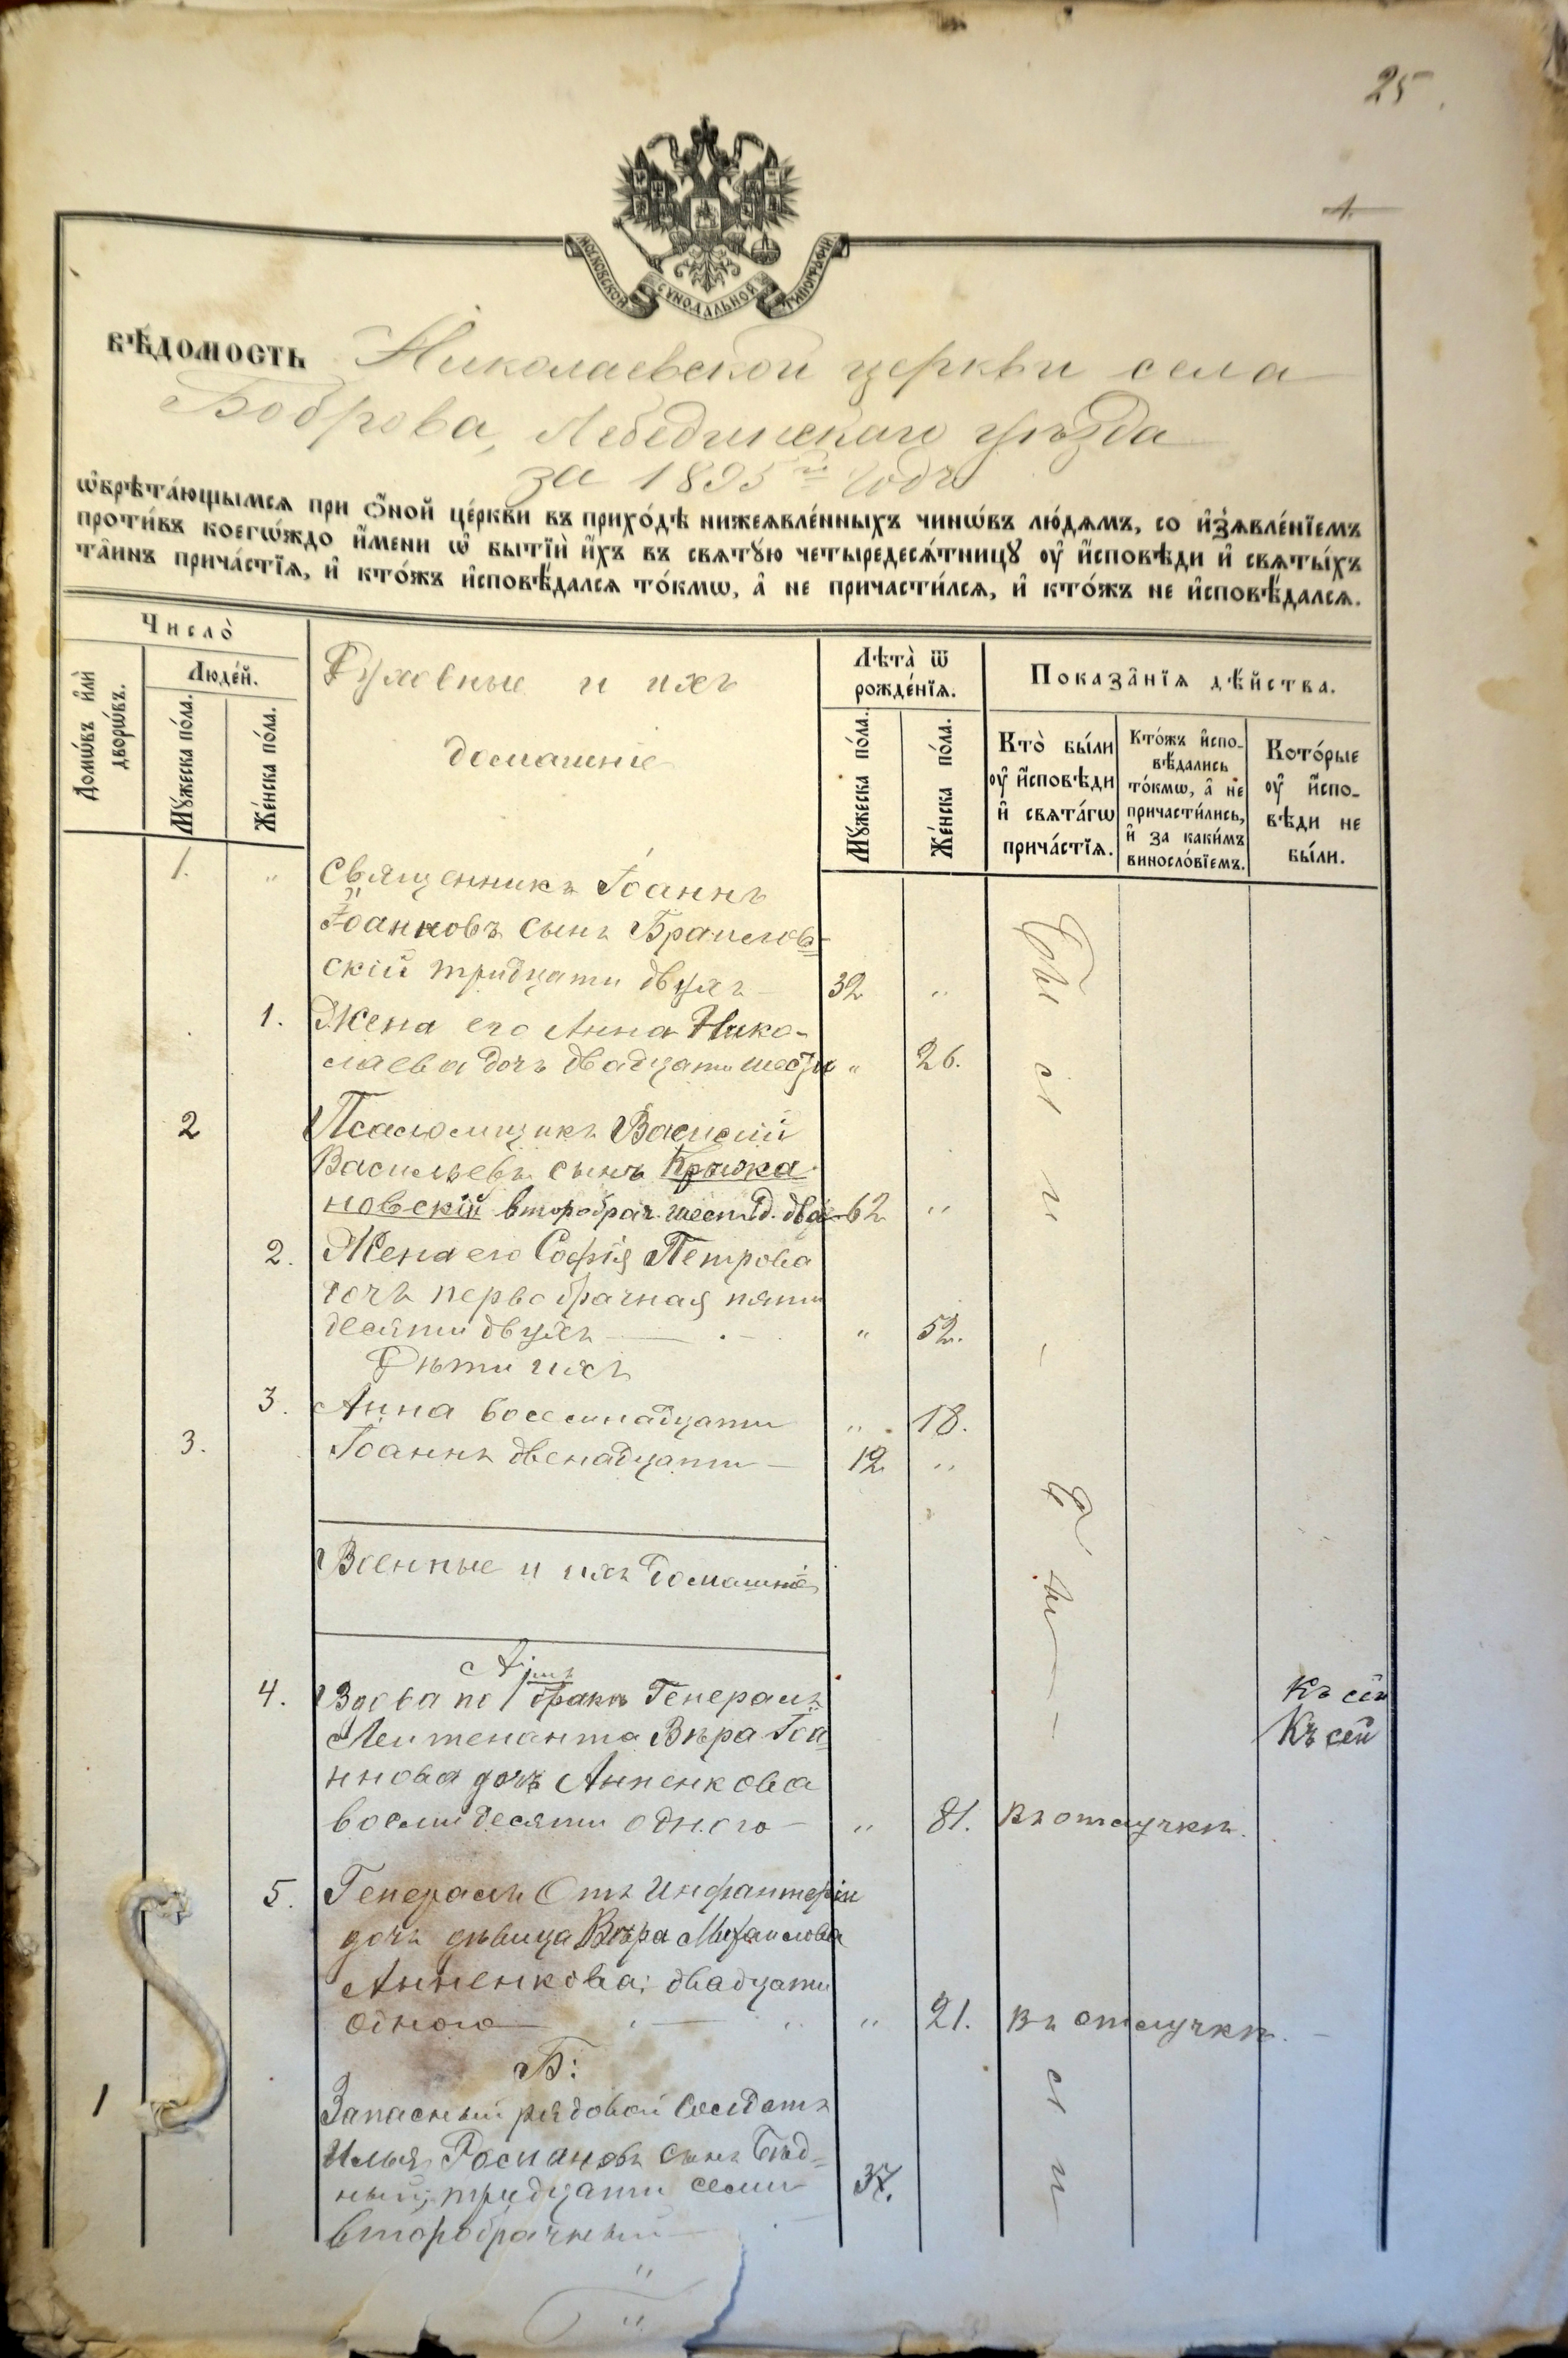 25
1.
МОСКОВСКОЙ СѴНОДАЛЬНОЙ ТИПОГРАФІИ
ВѢДОМОСТЬ Николаевской церкви села
Боброва, Лебединскаго уѣзда
за 1895й годъ
ѡ҆брѣта́ющымсѧ при ѻ҆́ной це́ркви въ прихо́дѣ нижеѧвле́нныхъ чинѡ́въ лю́дѧмъ, со и҆з̾ѧвле́нїемъ
проти́въ коегѡ́ждо и҆́мени ѡ҆ бытїѝ и҆́хъ въ свѧтꙋ́ю четыредесѧ́тницꙋ ᲂу҆ и҆́сповѣди и҆ свѧты́хъ
та̑инъ прича́стїѧ, и҆ кто́жъ и҆сповѣ́далсѧ то́кмѡ, а҆ не причасти́лсѧ, и҆ кто́жъ не и҆сповѣ́далсѧ.
Число̀
Домѡ́въ и҆лѝ дворѡ́въ.
Люде́й.
Мꙋ́жеска по́ла.
Же́нска по́ла.
Духовные и ихъ
домашніе
Лѣта̀ ѿ рожде́нїѧ.
Мꙋ́жеска по́ла.
Же́нска по́ла.
Показа̑нїѧ дѣ́йства.
Кто̀ бы́ли
ᲂу҆ и҆́сповѣди
и҆ свѧта́гѡ
прича́стїѧ.
Кто́жъ и҆спо-
вѣ́дались
то́кмѡ, а҆ не
причасти́лись,
и҆ за каки́мъ
виносло́вїемъ.
Кото́рые
ᲂу҆ и҆́спо-
вѣди не
бы́ли.
1. " Священникъ Іоаннъ
Іоанновъ сынъ Браилов-
скій тридцати двухъ 32 "
1. Жена его Анна Нико-
лаева дочь двадцати шести " 26.
2 Псаломщикъ Василій
Васильевъ сынъ Крыжа
новскій второбрач. шестид. двух 62 "
2. Жена его Софія Петрова
дочь первобрачная пяти
десяти двухъ " 52.
Дѣти ихъ
3. Анна восемнадцати " 18.
3. Іоаннъ двенадцати 12 "
Были
Военные и ихъ домашніе
А:
4. Вдова по 1мъ бракѣ Генералъ
Лейтенанта Вѣра Іоа
ннова дочь Анненкова
восьмидесяти одного " 81. Въ отлучкѣ.
Къ сей
Къ сей
5. Генералъ Отъ Инфантеріи
дочь дѣвица Вѣра Михаилова
Анненкова; двадцати
одного " 21. Въ отлучкѣ.
Б:
1 Запасный рядовой Солдатъ
Илья Романовъ сынъ Бѣд-
ный; тридцати семи 37.
второбрачный
Были